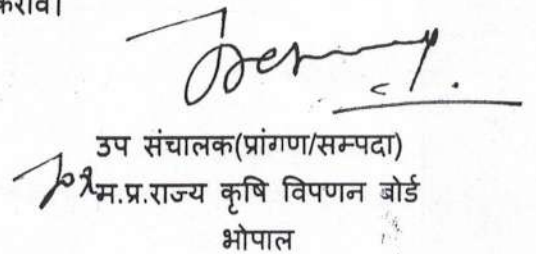 करावे।
उप संचालक(प्रांगण/सम्पदा)
म.प्र.राज्य कृषि विपणन बोर्ड
भोपाल